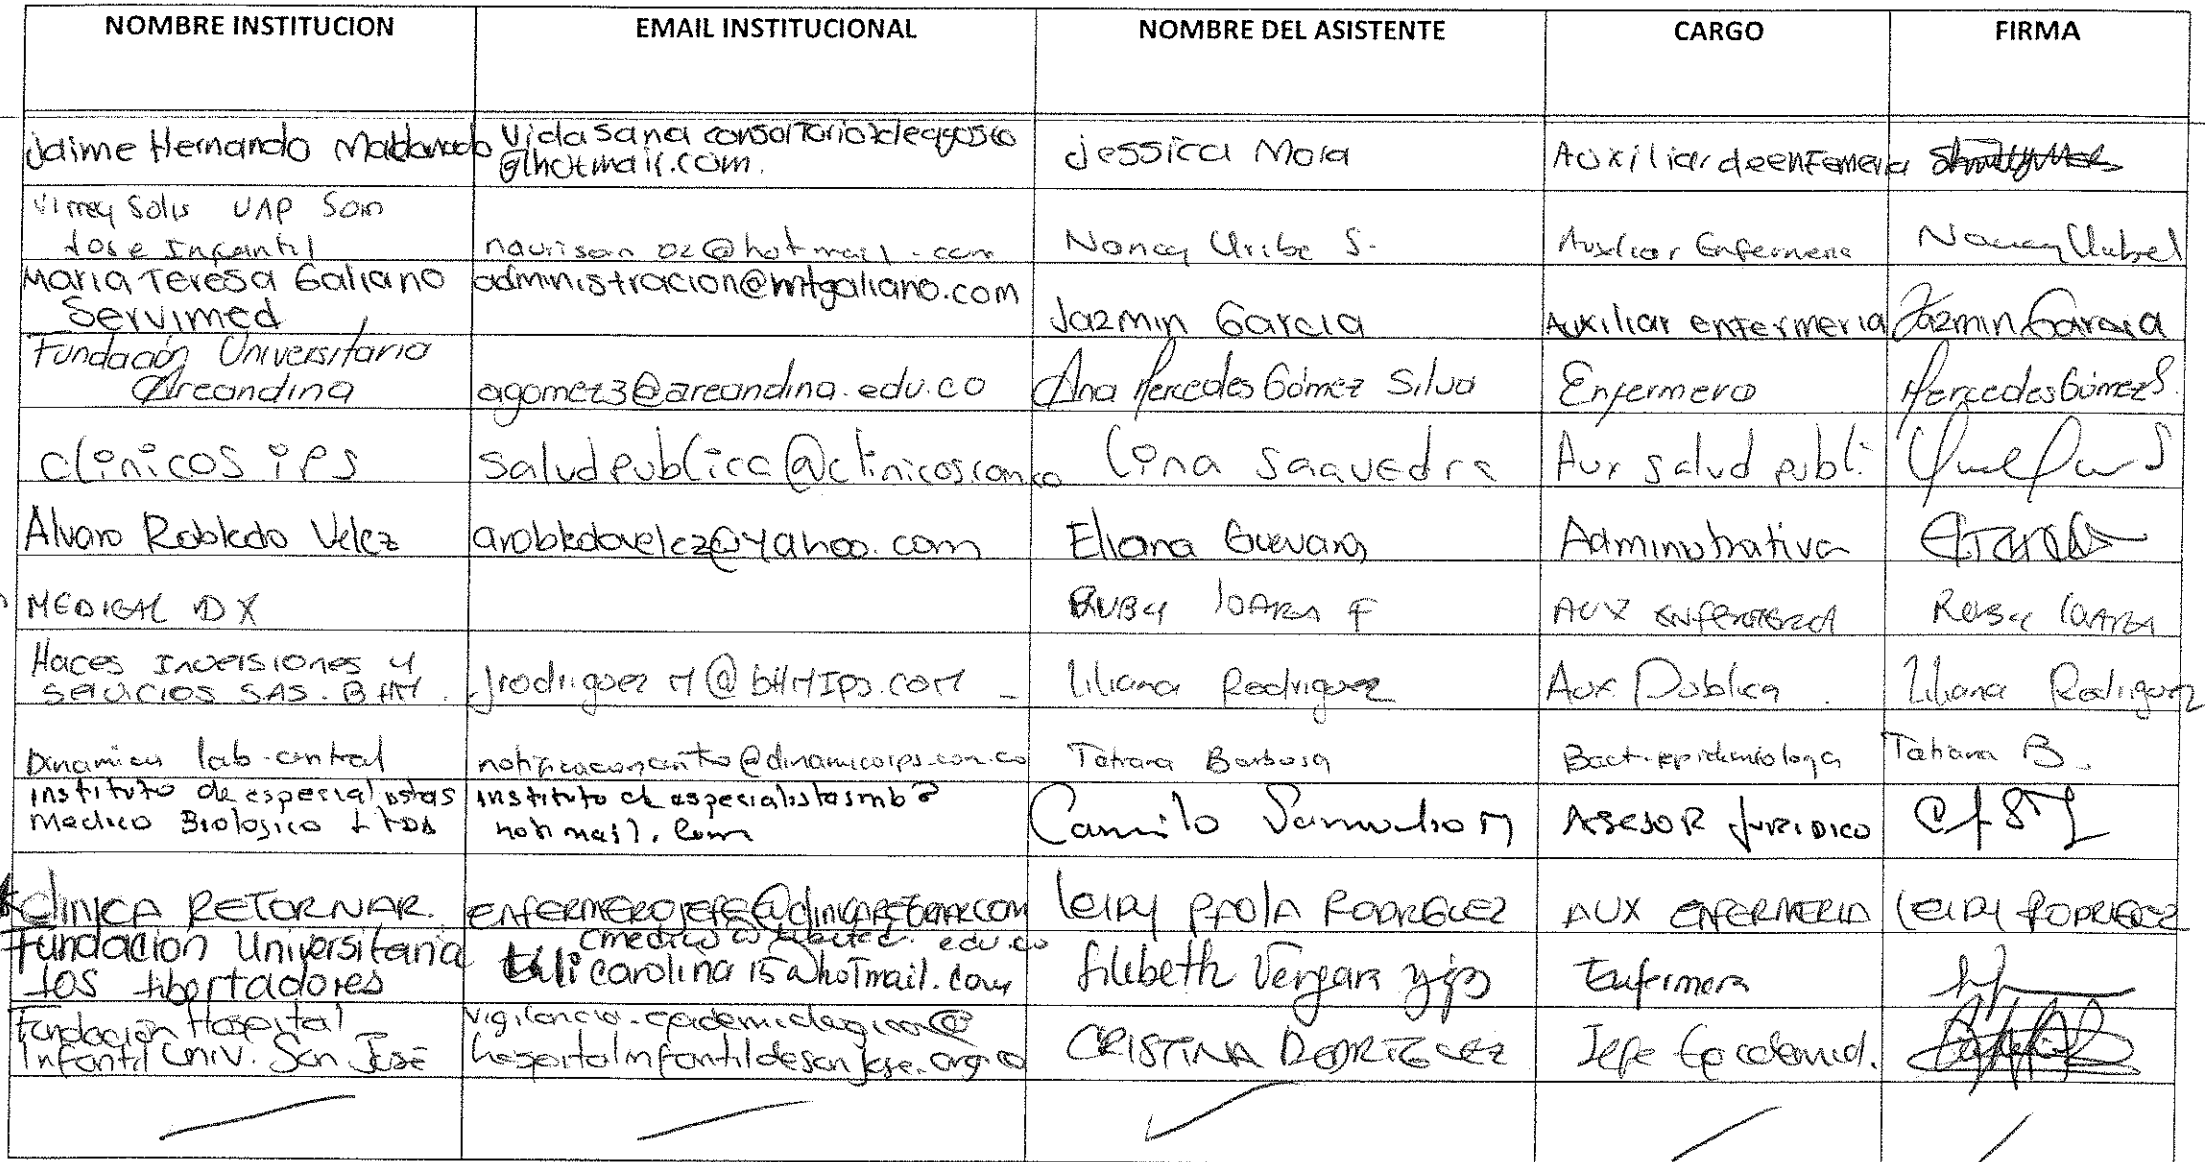 NOMBRE INSTITUCION EMAIL INSTITUCIONAL NOMBRE DEL ASISTENTE CARGO FIRMA
Jaime Hernando Maldonado Vidasana consortorio
@hotmail.com. Jessica Mora Auxiliar de enfermeria
Virrey Solis UAP San
Jose Infantil naurison02@hotmail.com Nancy Uribe S. Auxiliar Enfermeria
Maria Teresa Galiano administracion@mtgaliano.com
Servimed Jazmin Garcia Auxiliar enfermeria Jazmin Garcia
Fundación Universitaria
Areandina agomez3@areandina.edu.co Ana Mercedes Gómez Silva Enfermera Mercedes Gómez S.
Clinicos ips saludpublica@clinicos.com.co Lina Saavedra Aux salud publi.
Alvaro Robledo Velez arobledovelez@yahoo.com Eliana Guevara Administrativa
MEDICAL DX RUBY F AUX ENFERMERIA
Haces Inversiones y
servicios SAS. BHM. jrodriguezM@bHMIps.com Liliana Rodriguez Aux. Publica. Liliana Rodriguez
Dinamica lab central @dinamicaips.com.co Tatiana Barbosa Bact-epidemiologa Tatiana B.
instituto de especialistas instituto de especialistasmb
Medico Biologico Ltda hotmail.com Camilo M ASESOR JURIDICO
CLINICA RETORNAR. ENFERMEROJEFE@CLINICARETORNAR.COM LEIDY PAOLA RODRIGUEZ AUX ENFERMERIA LEIDY RODRIGUEZ
Fundacion Universitaria cmedico@ edu.co
los libertadores lilicarolina15@hotmail.com Lilibeth Vergara Enfermera
Fundación Hospital vigilancia.epidemiologica@
Infantil Univ. San José hospitalinfantildesanjose.org.co CRISTINA RODRIGUEZ Jefe Epidemiol.